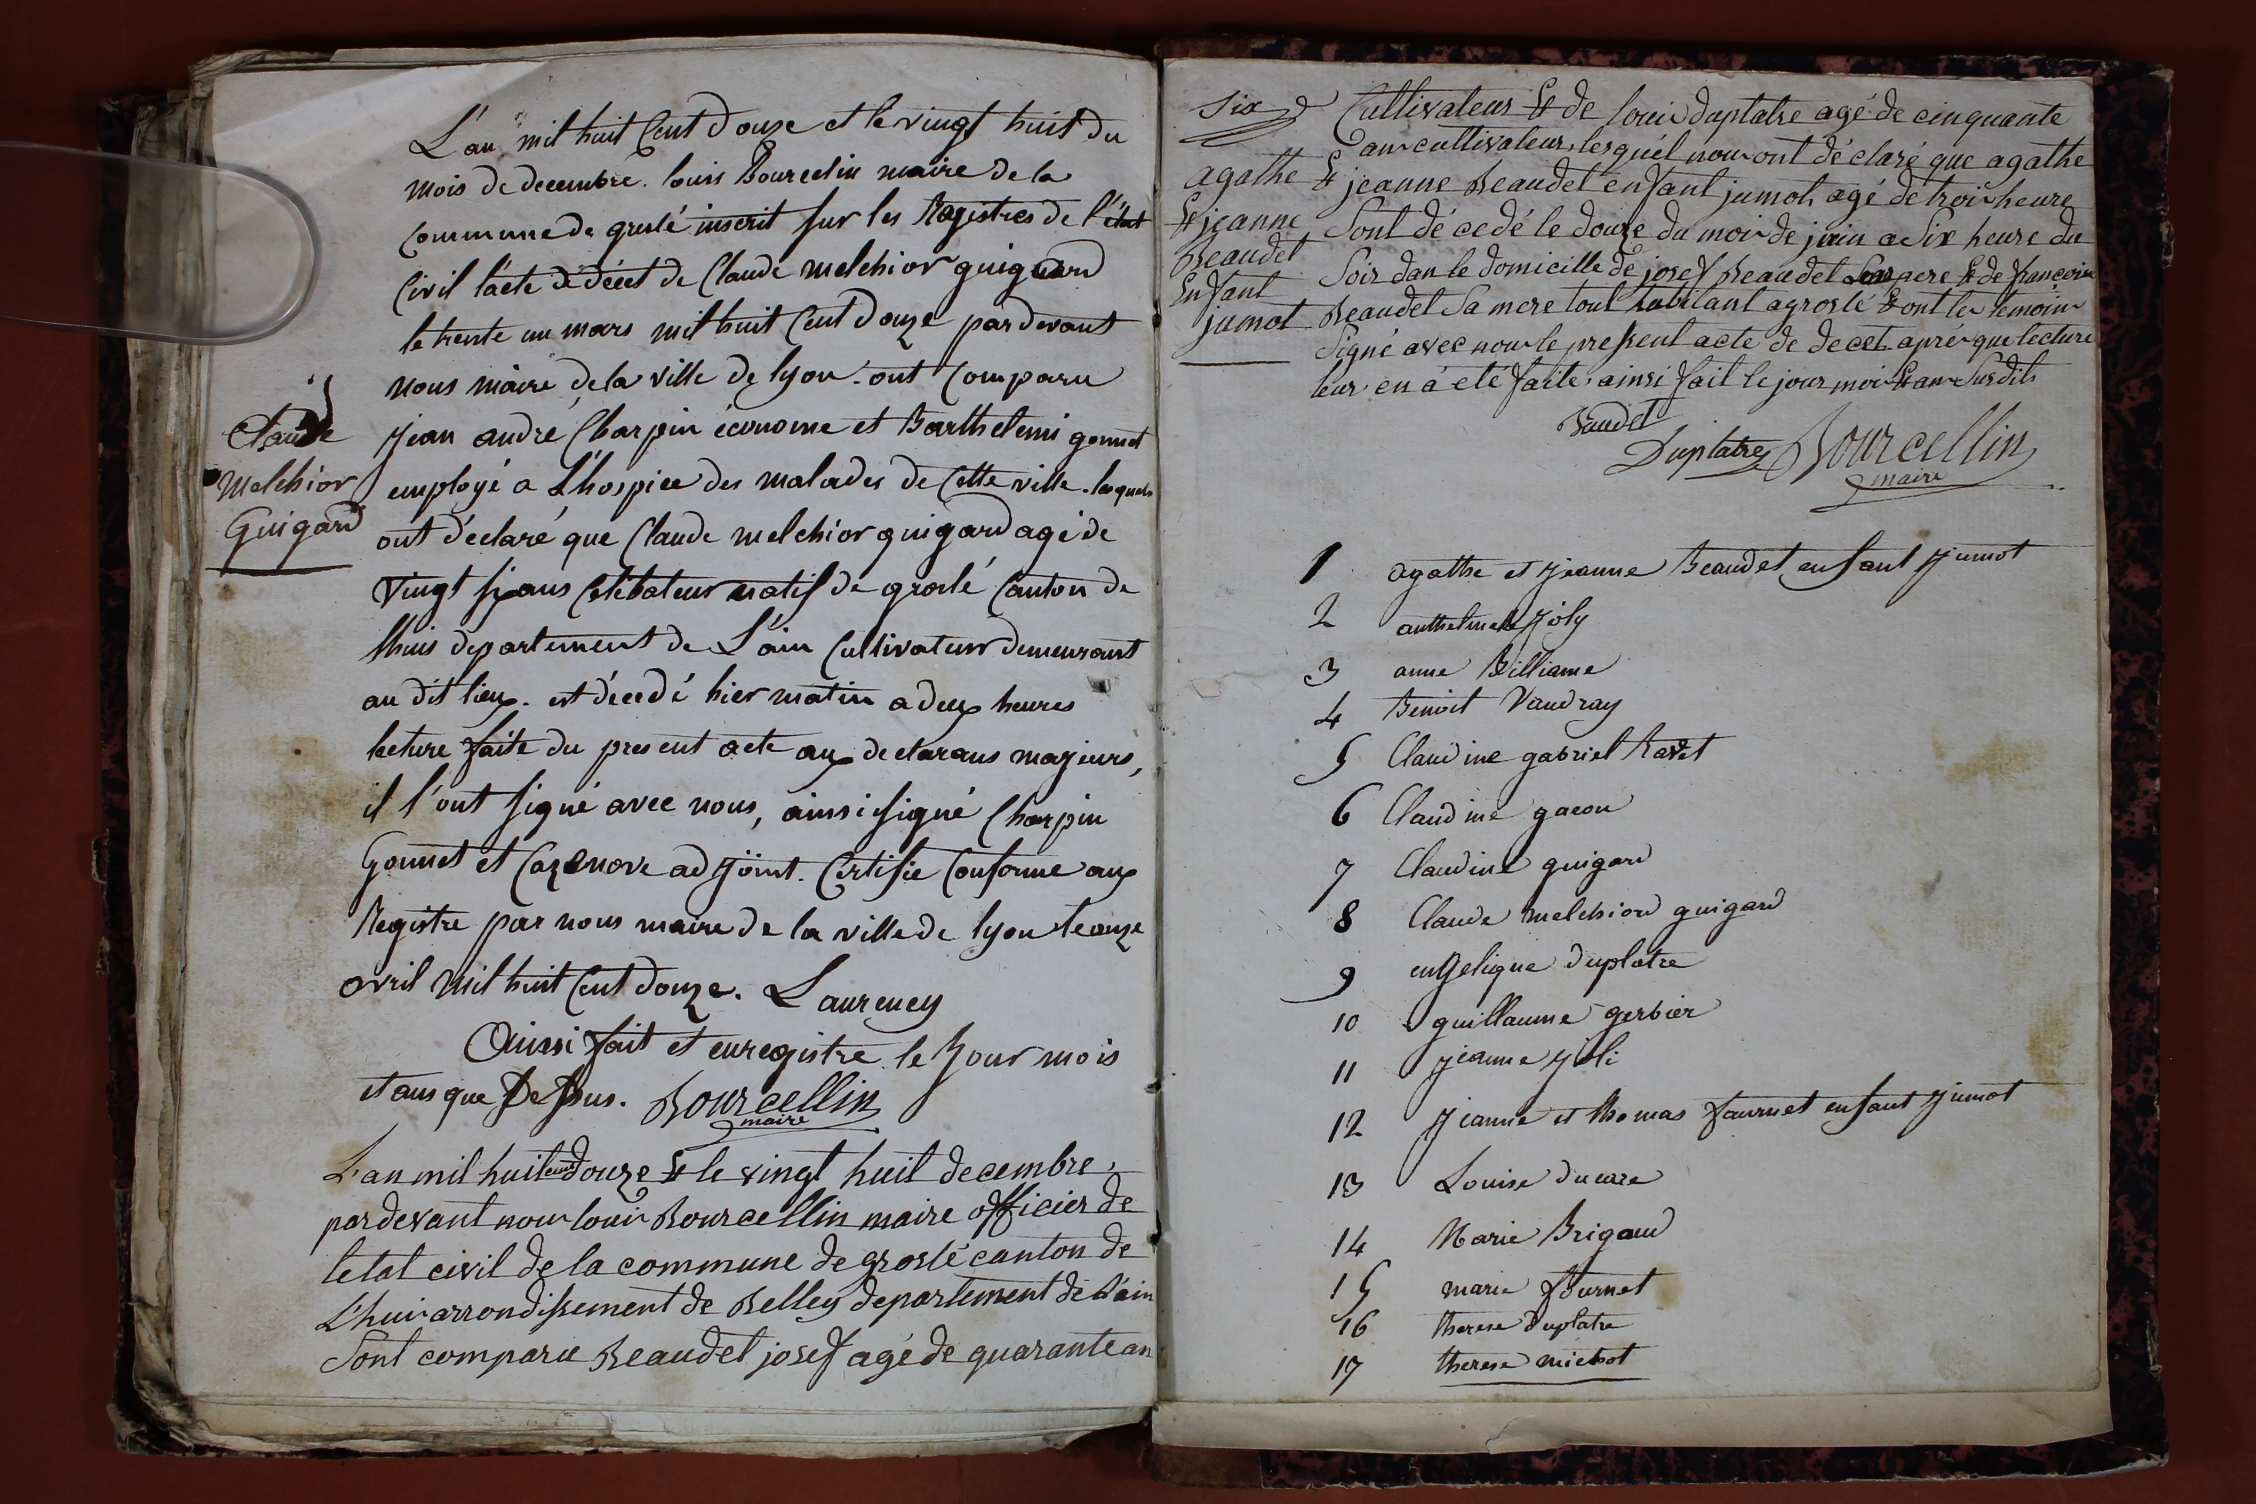 L'an mil huit Cent douze et le vingt huit du
mois de decembre. louis Bourcelin maire de la
Commune de groslé inscrit sur les Registres de l'état
Civil l'acte dédécet de Claude melchior guiguard
le trente un mars mil huit Cent Douze pardevant
nous maire de la ville de lyon. ont Comparu
Claude
Melchior
Guigard
jean andré Charpin économe et Barthelemi gonnet
employé a L'hospice des malades de Cette ville. lesquels
ont déclaré que Claude melchior guigard agé de
vingt six ans Célibateur natif de groslé Canton de
lhuis departement de L'ain Cultivateur demeurant
au dit lieux. est décedé hier matin a deux heures
lecture faite du present acte aux declarans majeurs,
il l'ont signé avec nous, ainsi signé Charpin
Gonnet et Cazenove adjoint. Certifié Conforme aux
Registre par nous maire de la ville de lyon le onze
avril mil huit Cent douze. Laurency
Ainsi fait et enregistre le jour mois
et ans que Dessus. Bourcellin
maire
L'an mil huit cent douze & le vingt huit decembre,
par devant nous loui Bourcellin maire officier de
letat civil de la commune de groslé canton de
L'hui arrondissement de Belley departement de L'ain
Sont comparu Beaudet josef agé de quarante an
Six
Cultivateur & de loui duplatre agé de cinquante
an cultivateur, lesquél nou ont déclaré que agathe
& jeanne Beaudet enfant jumot agé de troi heure
Sont décedé le douze du moi de juin a Six heure du
Soir dan le domicille de josef Beaudet & de françoise
Beaudet Sa mere tout habitant a groslé & ont le temoin
Signé avec nou le present acte de decet aprè que lecture
leur en á eté faite, ainsi fait le jour moi & an Susdit
agathe
& jeanne
Beaudet
Enfant
jumot
Baudet
Duplatre Bourcellin
maire
1 agathe et jeanne Beaudet enfant jumot
2 anthelmette joly
3 anne Billiame
4 Benoit Vaudray
5 Claudine gabriel Ravet
6 Claudine gacon
7 Claudine guigard
8 Claude melchiord guigard
9 engelique duplatre
10 guillaume gerbier
11 jeanne joli
12 jeanne et thomas fournet enfant jumot
13 Louise ducare
14 Marie Brigand
15 marie fournet
16 therese duplatre
17 therese michot